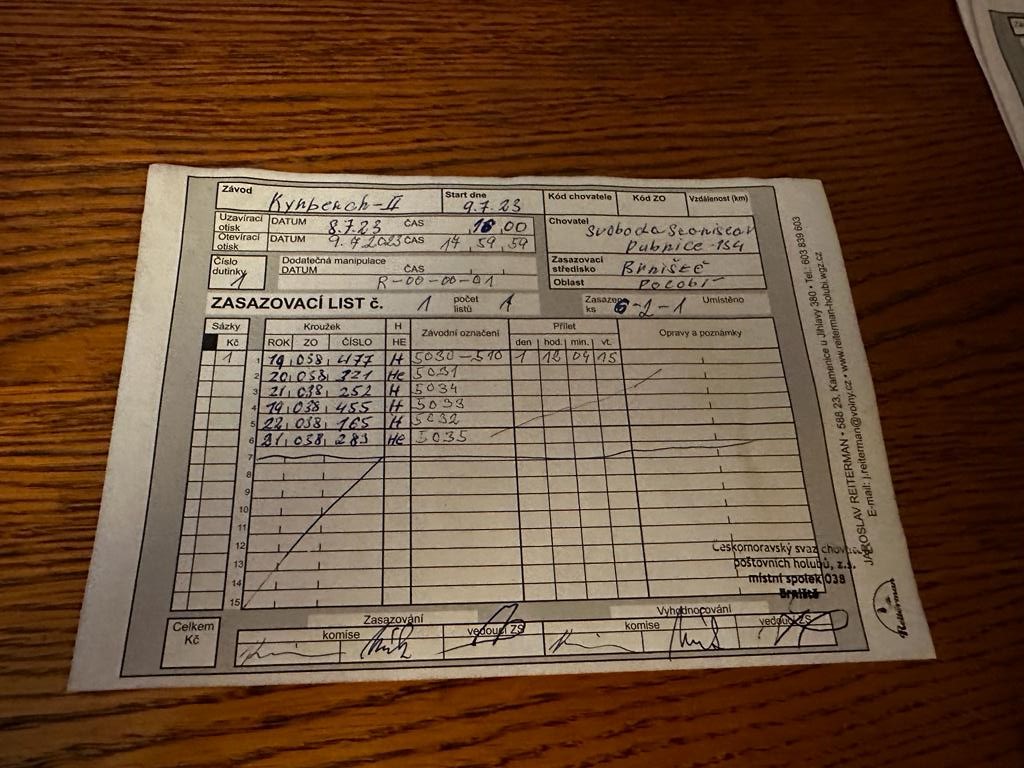 Závod Kynperch-II Start dne 9.7.23 Kód chovatele Kód ZO Vzdálenost (km)
Uzavírací otisk DATUM 8.7.23 ČAS 18,00
Otevírací otisk DATUM 9.7.2023 ČAS 17,59,59
Chovatel Svoboda Stanislav
Dubnice 154
Číslo dutinky 1
Dodatečná manipulace
DATUM ČAS
R-00-00-01
Zasazovací středisko Brniště
Oblast POLABÍ
ZASAZOVACÍ LIST č. 1 počet listů 1 Zasazeno ks 6-2-1 Umístěno
Sázky Kroužek H Závodní označení Přílet Opravy a poznámky
Kč ROK ZO ČÍSLO HE den hod. min. vt.
1 1 19 038 477 H 5030-510 1 12 04 15
2 20 038 321 He 5031
3 21 038 252 H 5034
4 19 038 455 H 5033
5 22 038 165 H 5032
6 21 038 283 He 5035
7
8
9
10
11
12
13
14
15
Českomoravský svaz chovatelů
poštovních holubů, z.s.
místní spolek 038
Brniště
Celkem Kč
Zasazování Vyhodnocování
komise vedoucí ZS komise vedoucí ZS
JAROSLAV REITERMAN • 588 23, Kamenice u Jihlavy 380 • Tel.: 603 839 603
E-mail: j.reiterman@volny.cz • www.reiterman-holubi.wgz.cz
Reiterman